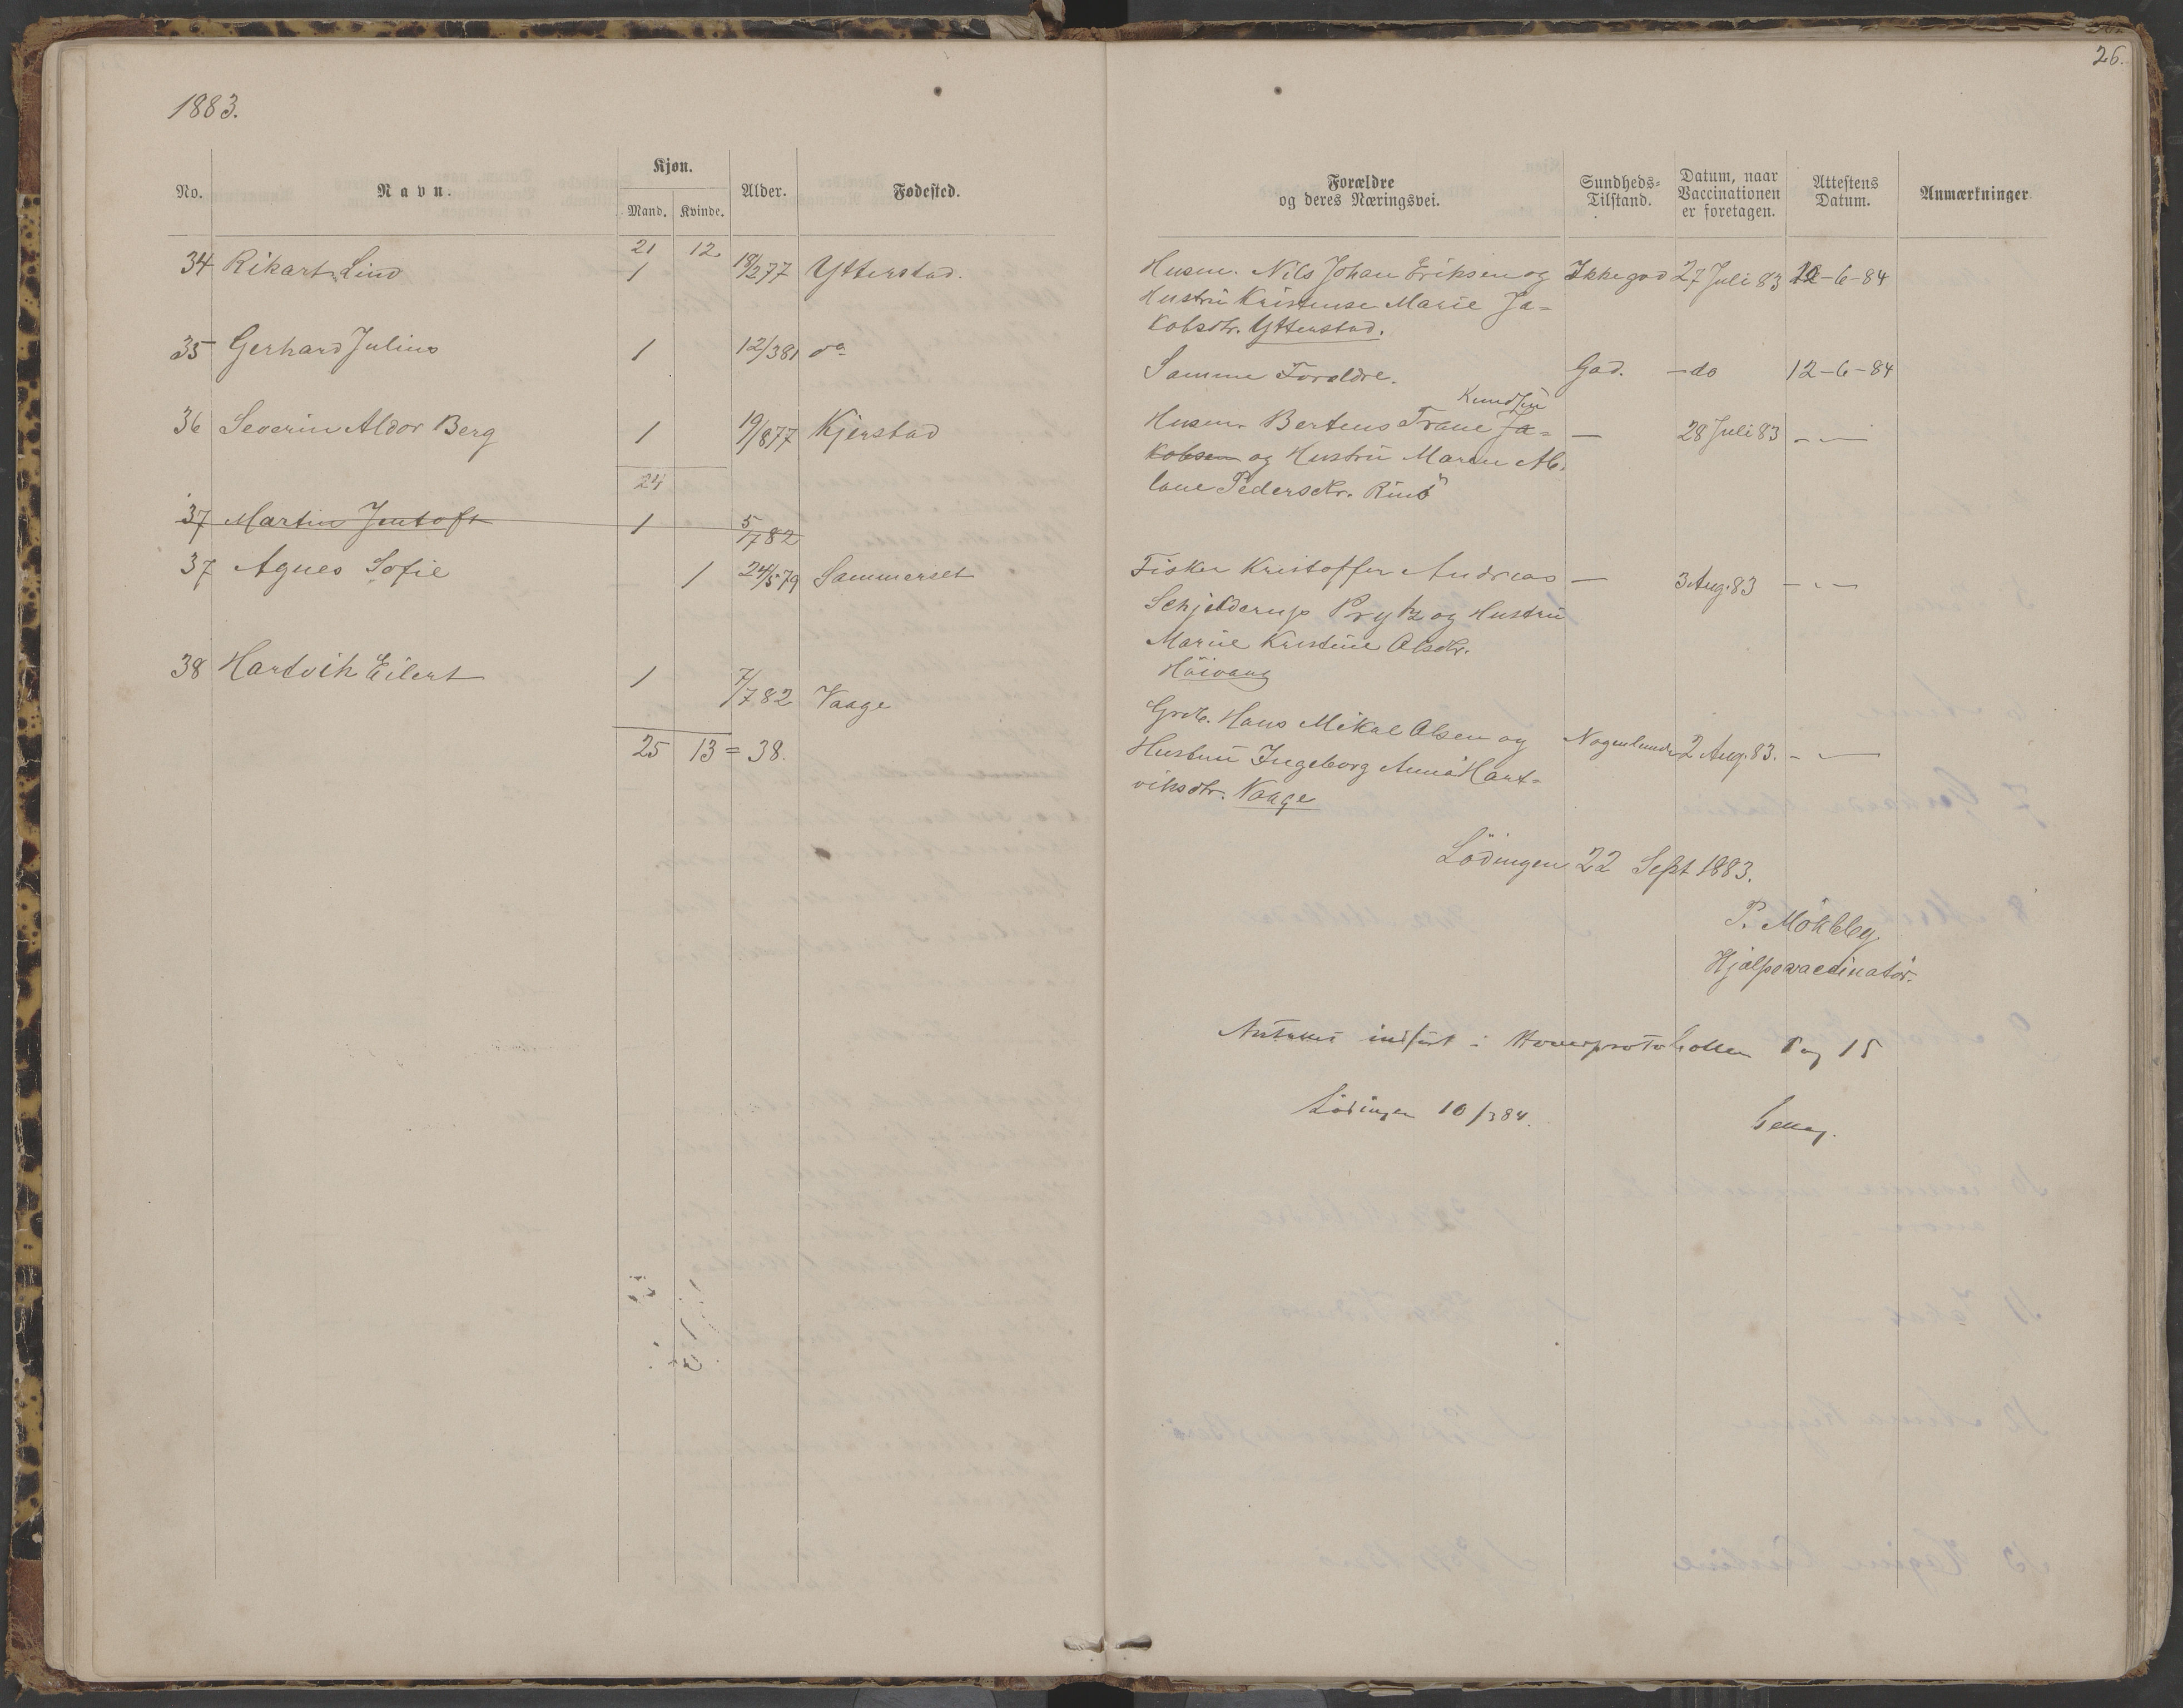 26.
1883.
No. Navn. Kjøn. Mand. Kvinde. Alder. Fødested.
Forældre og deres Næringsvei. Sundheds-Tilstand. Datum, naar Vaccinationen er foretagen. Attestens Datum. Anmærkninger
21 12
34 Rikart Lind 1 18/2 77 Ytterstad.
Husm. Nils Johan Eriksen og Ikke god 27 Juli 83 12-6-84
Hustru Kristense Marie Ja=
kobsdtr. Ytterstad.
35 Gerhard Julius 1 12/3 81 do
Samme Foræaldre. God. - do 12-6-84
36 Severin Aldor Berg 1 19/8 77 Kjerstad
Knudsen
Husm. Berteus Trane Ja= — 28 Juli 83 - —
kobsen og Hustru Maren Ab.
lone Pedersdtr. Rinö
24
37 Martin Jentoft 1 5/7 82
37 Agnes Sofie 1 24/5 79 Sammerset
Fisker Kristoffer Andreas — 3 Aug. 83 - - —
Schjelderup Prytz og Hustru
Marie Kristine Olsdtr.
Höivang
38 Hartvik Eilert 1 7/7 82 Vaage
Grdb. Hans Mikal Olsen og Nogenlunde 2 Aug. 83. - —
Hustru Ingeborg Anna Hart=
viksdtr. Vaage
25 13 = 38.
Lödingen 22 Sept 1883.
P. Mökleby
Hjælpevaccinatör.
indført i Hovedprotokollen Pag 15
Lödingen 10/3 84.